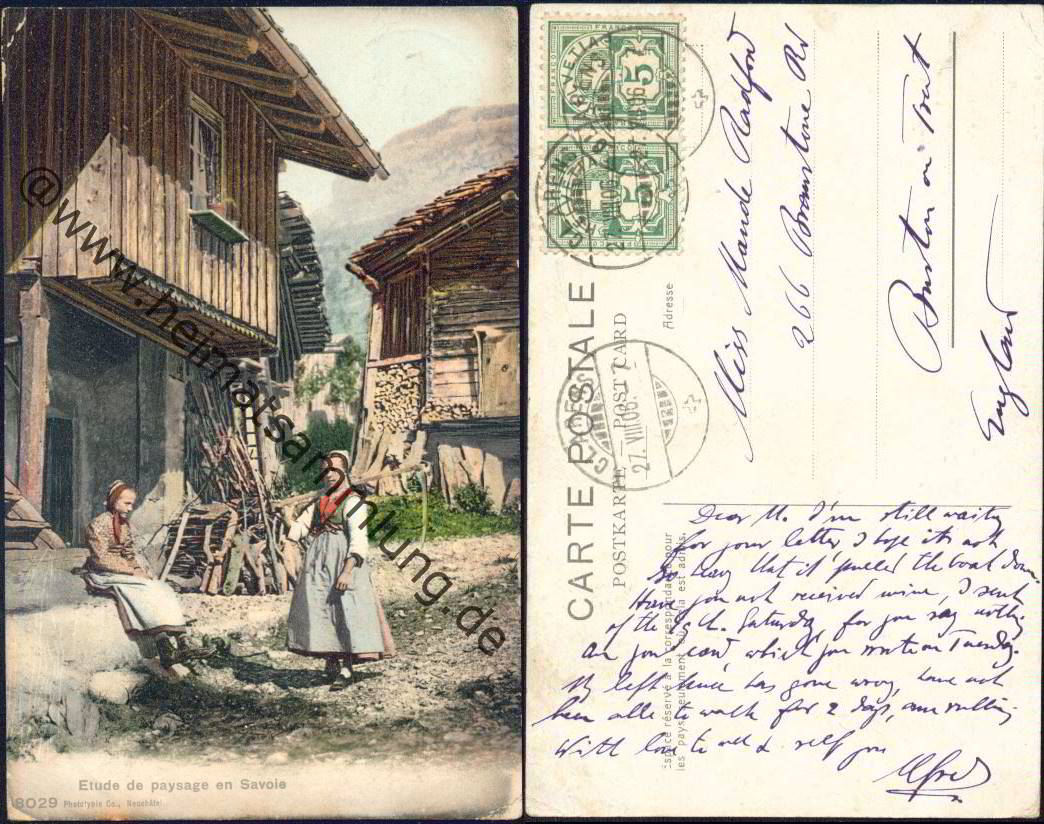 @www.heimatsammlung.de
Etude de paysage en Savoie
8029 Phototypie Co., Neuchâtel
HELVETIA
FRANCO
5
5
27.VIII.06.
CARTE POSTALE
POSTKARTE POST CARD
Adresse
Espace réservé à la correspondance pour
les pays seulement où cela est admis.
Miss Maude Radford
266 Branstone Rd
Burton on Trent
England
Dear M. I'm still waiting
for your letter I hope its not
so heavy that it pulled the boat down.
Have you not received mine, I sent
of the Sat. Saturday for you say nothing
on your card which you wrote on Tuesday.
My left knee has gone wrong, have not
been able to walk for 2 days, am rubbing
With love to all & self you
Alfred